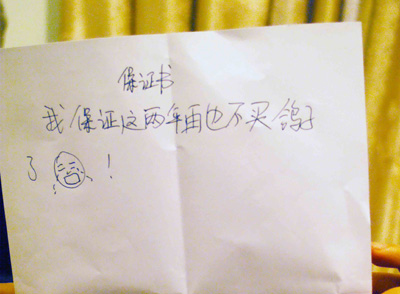 保证书
我保证这两年再也不买鸽子
了！